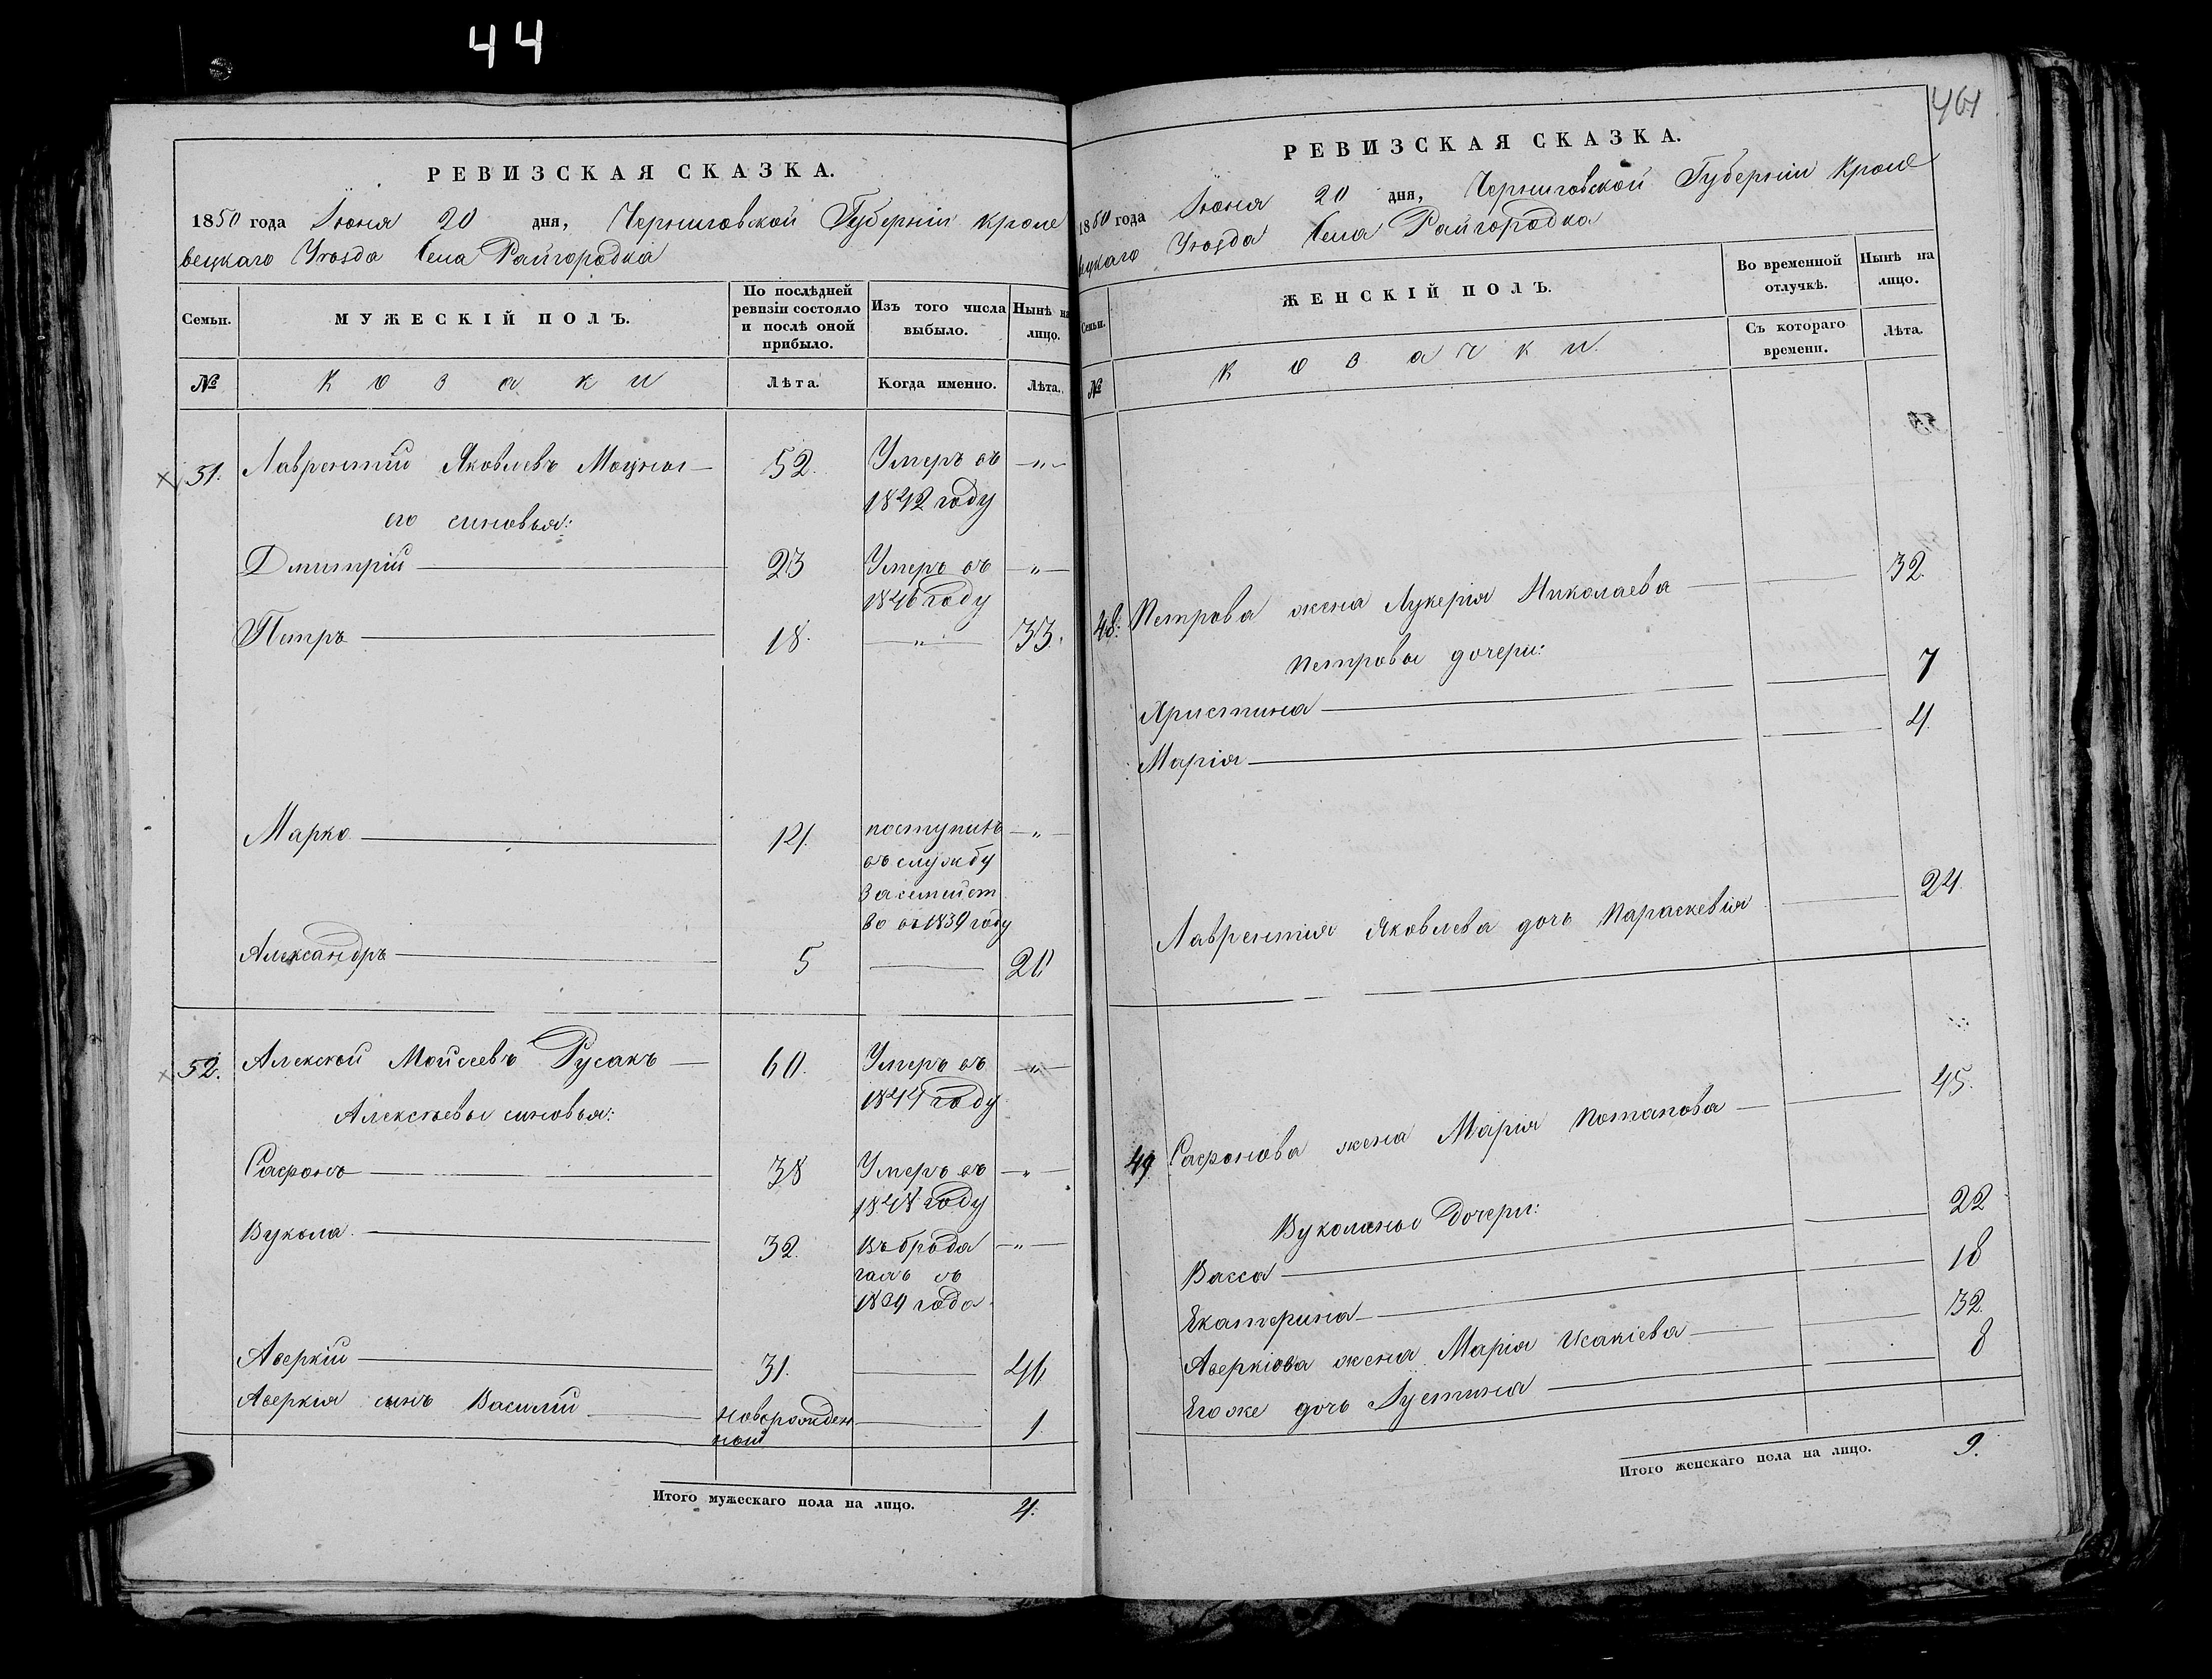 44
РЕВИЗСКАЯ СКАЗКА.
1850 года Іюня 20 дня, Черниговской Губерніи Кроле
вецкаго Уѣзда Села Райгородка
Семьи.
МУЖЕСКІЙ ПОЛЪ.
По послѣдней
ревизіи состояло
и послѣ оной
прибыло.
Изъ того числа
выбыло.
Нынѣ на
лицо.
№
Козаки
Лѣта.
Когда именно.
Лѣта.
51. Лаврентій Яковлевъ 52. Умеръ въ —„—
1842 году
его синовья:
Дмитрій 23 Умеръ въ —„—
1846 году
Петръ 18. —„— 33.
Марко 12. поступилъ —„—
въ службу
за семейст
во въ 1839 году
Александръ 5 — 20
52. Алексѣй Мойсеевъ Русакъ 60. Умеръ въ —„—
1844 году
Алексѣевы синовья:
Сафонъ 38 Умеръ въ —„—
1848 году
Вукола 32. Въ брода —„—
гахъ съ
1839 года
Аверкій 31. — 46
Аверкія сынъ Василій новорожден — 1.
ный
Итого мужескаго пола на лицо. 4.
461
РЕВИЗСКАЯ СКАЗКА.
1850 года Іюня 20 дня, Черниговской Губерніи Кроле
вецкаго Уѣзда Села Райгородка
Семьи.
ЖЕНСКІЙ ПОЛЪ.
Во временной
отлучкѣ.
Нынѣ на
лицо.
Съ котораго
времени.
Лѣта.
№
Козачки
48: Петрова жена Лукерія Николаева — 32.
Петровы дочери:
Христина — 7
Марія — 4.
Лаврентія Яковлева дочь Параскевія — 24.
49 Сафонова жена Марія Потапова — 45.
Вуколины дочери:
Васса — 22
Екатерина — 18
Аверкіова жена Марія Исакіева — 32.
Его же дочь Іустина — 8
Итого женскаго пола на лицо. 9.